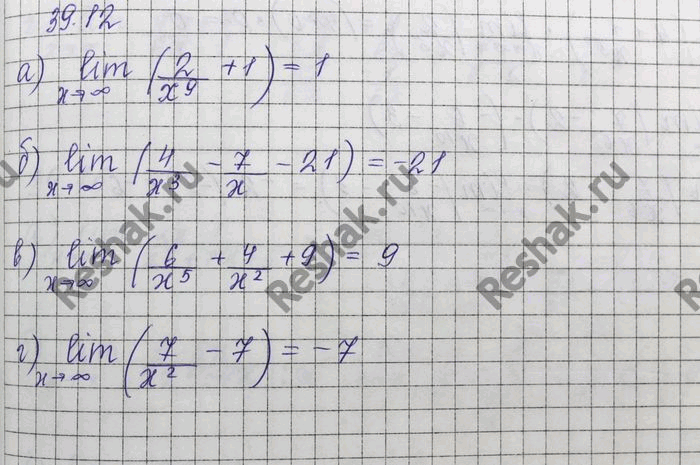 39.12
а) lim x→∞ (2/x⁹ + 1) = 1
б) lim x→∞ (4/x³ - 7/x - 21) = -21
в) lim x→∞ (6/x⁵ + 4/x² + 9) = 9
г) lim x→∞ (7/x² - 7) = -7
Reshak.ru
Reshak.ru
Reshak.ru